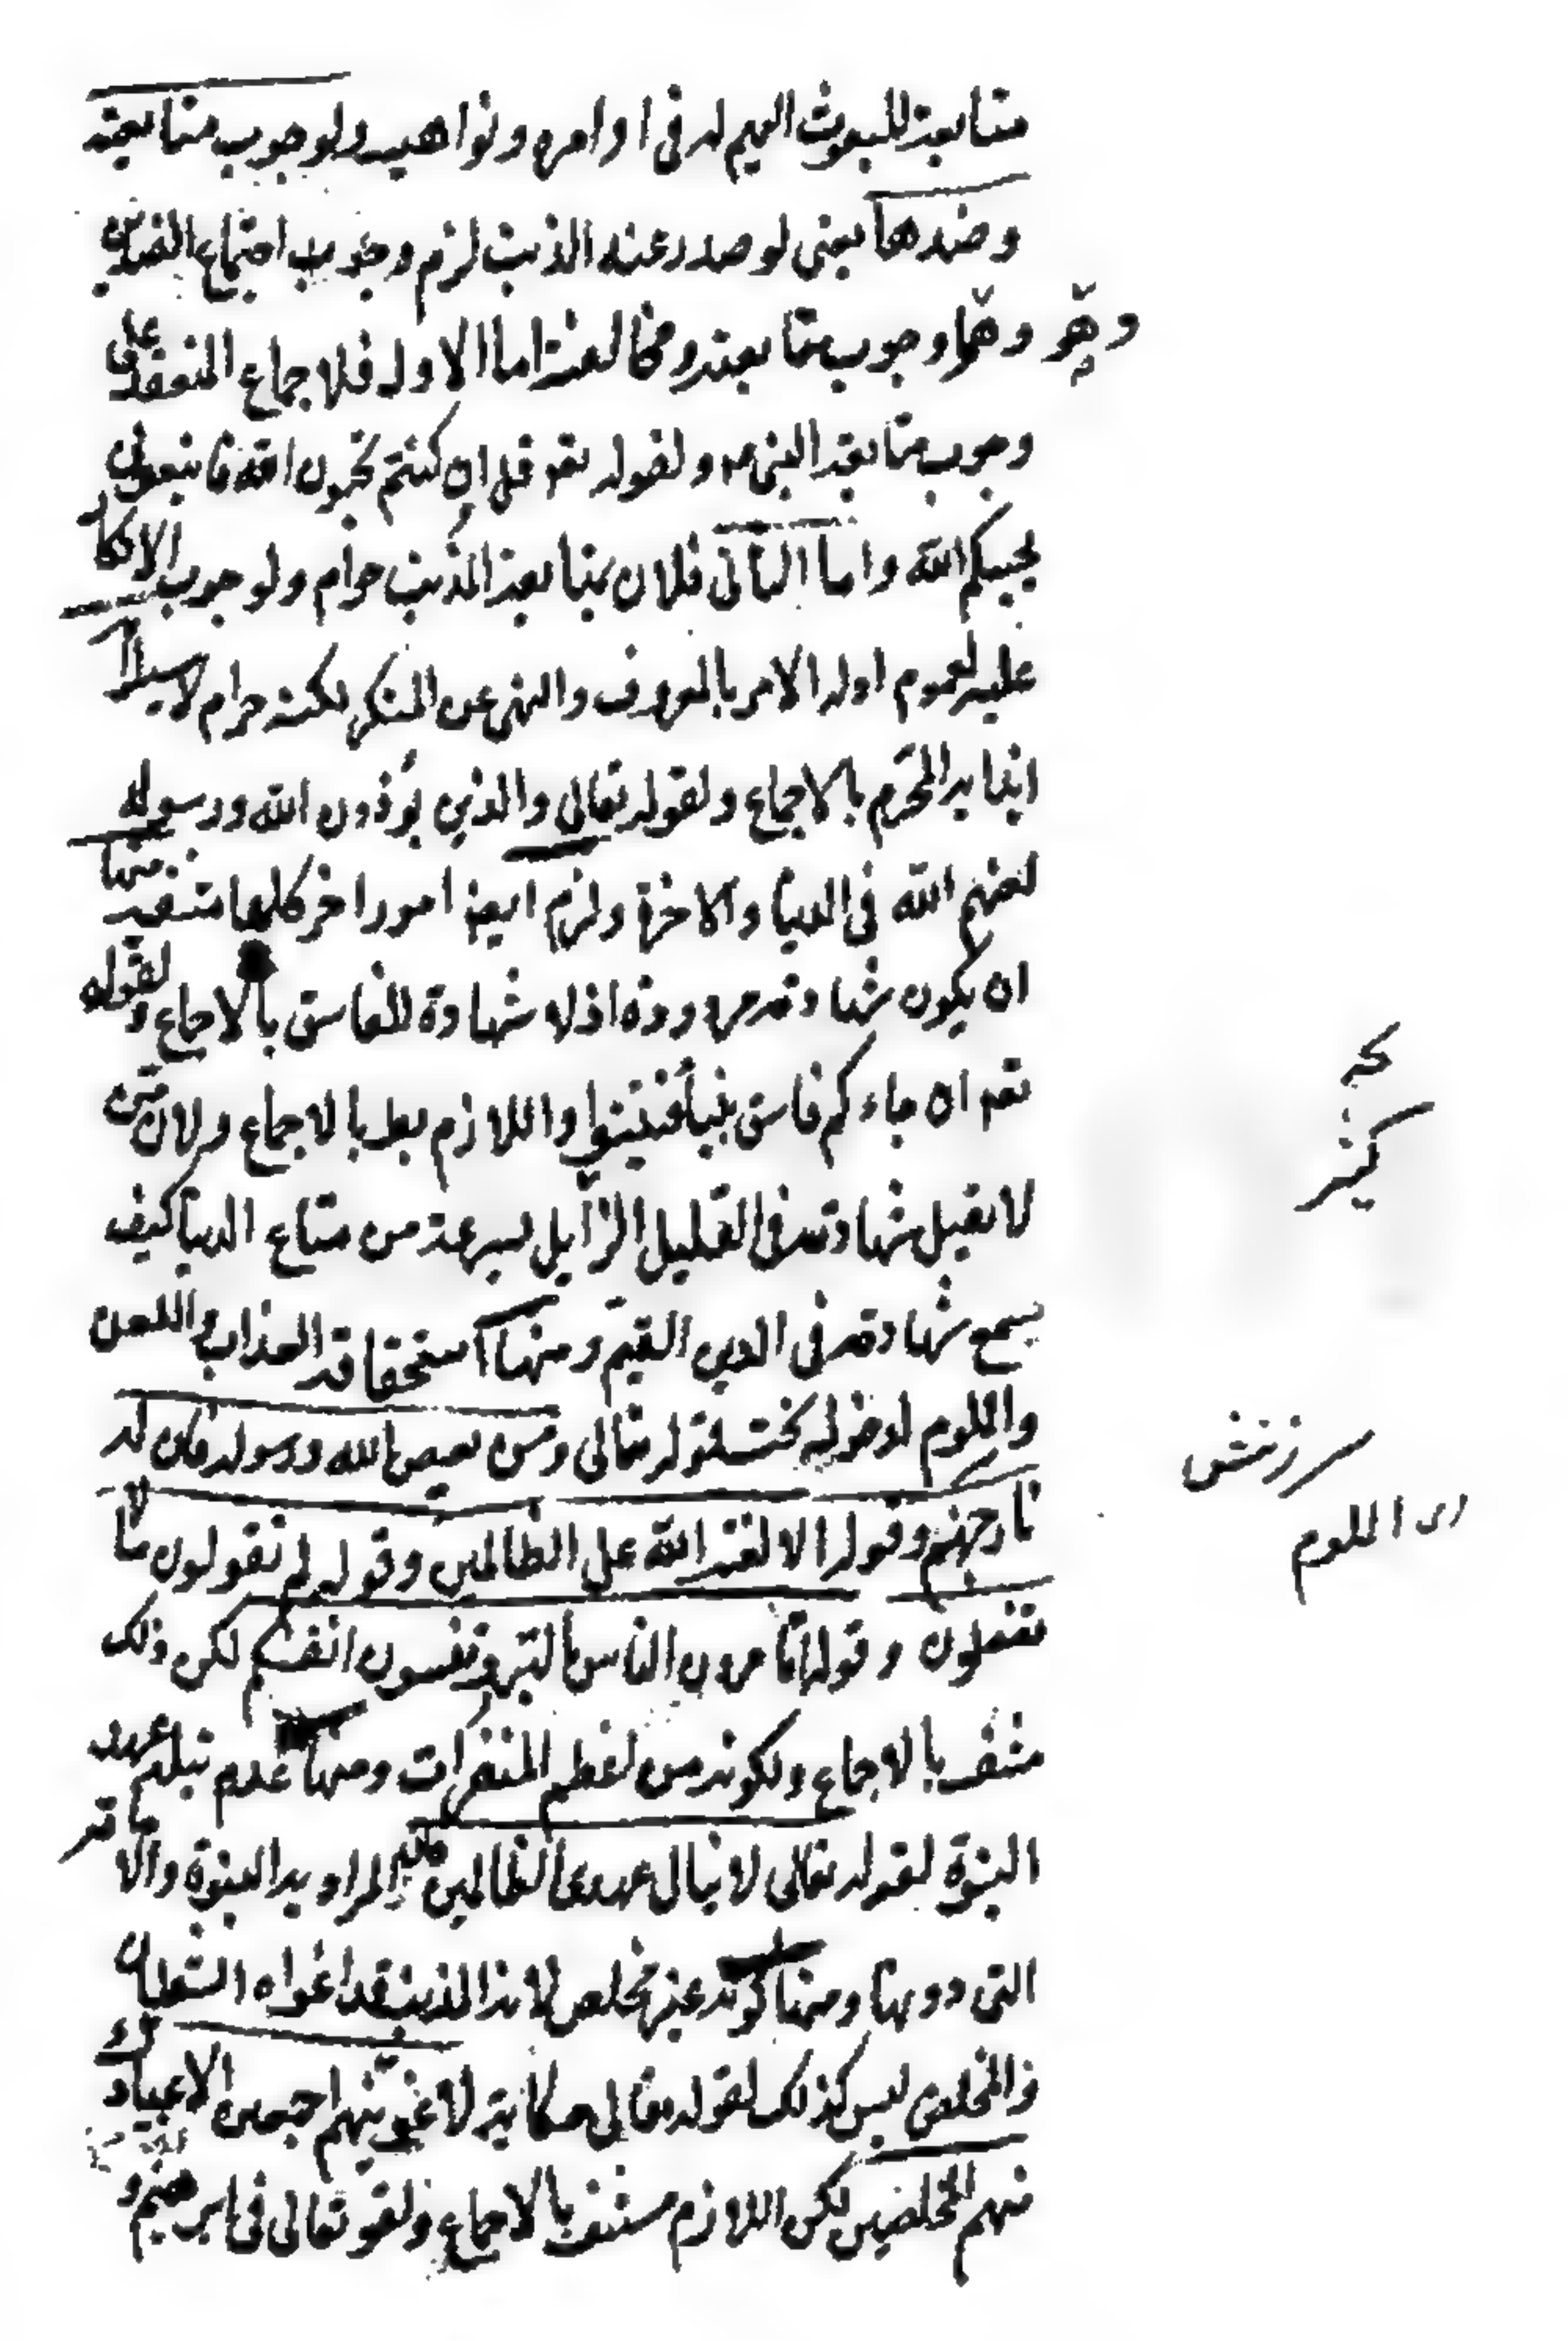 متابعة المبعوث اليهم له فى اوامره ونواهيه ولوجوب متابعته
وضدها يعنى لو صدر عنه الذنب لزم وجوب اجتماع الضدين
وهما وجوب متابعته ومخالفته اما الاول فلاجماع المنعقد على
وجوب متابعة النبى ص ولقوله تع قل ان كنتم تحبون الله فاتبعونى
يحببكم الله واما الثانى فلان متابعة المذنب حرام ولوجوب الانكار
عليه لعموم ادلة الامر بالمعروف والنهى عن المنكر لكنه حرام لاستلزامه
ايذاءه المحرم بالاجماع ولقوله تعالى والذين يؤذون الله ورسوله
لعنهم الله فى الدنيا والاخرة ولزم ايضا امور اخر كلها منتفية منها
ان يكون شهادته مردودة اذ لا شهادة للفاسق بالاجماع ولقوله
تع ان جاءكم فاسق بنبأ فتبينوا واللازم بط بالاجماع ولان من
لا تقبل شهادته فى القليل الزايل بسرعة من متاع الدنيا كيف
يسمع شهادته فى الدين القيم ومنها استحقاقه العذاب واللعن
واللوم لدخوله تحت قوله تعالى ومن يعص الله ورسوله فان له
نار جهنم وقوله الا لعنة الله على الظالمين وقوله لم تقولون ما لا
تفعلون وقوله اتأمرون الناس بالبر وتنسون انفسكم لكن ذلك
منتف بالاجماع ولكونه من اعظم المنفرات ومنها عدم نيله عهد
النبوة لقوله تعالى لا ينال عهدى الظالمين فان المراد به النبوة والامامة
التى دونها ومنها كونه غير مخلص لانه المذنب قد اغواه الشيطان
والمخلص ليس كذلك لقوله تعالى حكاية لاغوينهم اجمعين الا عبادك
منهم المخلصين لكن اللازم منتف بالاجماع ولقوله تعالى فى ابرهيم و
سرزنش
اى اللوم